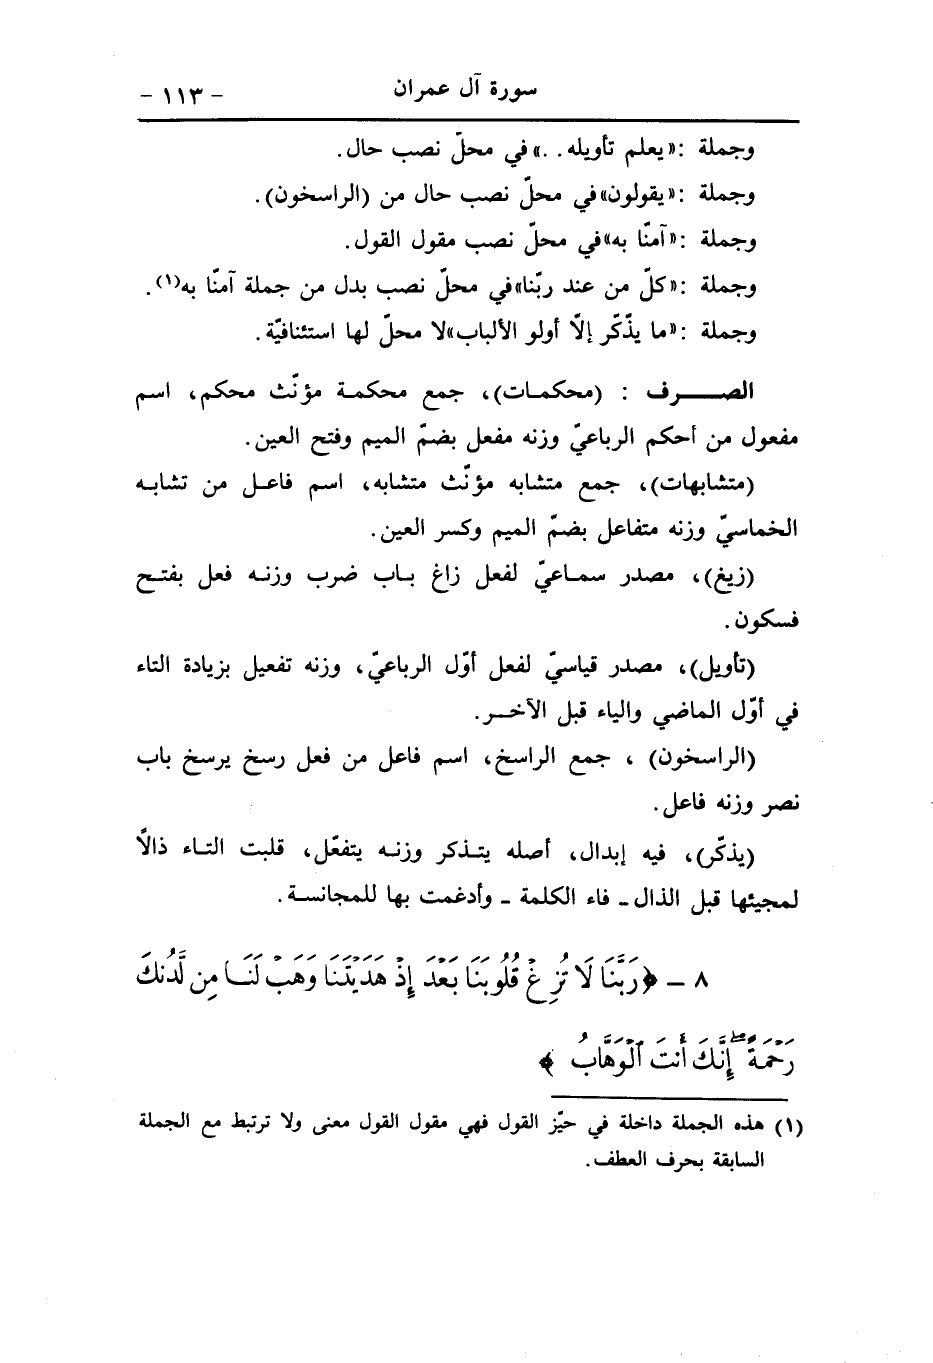 سورة آل عمران - ١١٣ -
وجملة :«يعلم تأويله. .» في محلّ نصب حال.
وجملة :«يقولون»في محلّ نصب حال من (الراسخون).
وجملة :«آمنّا به»في محلّ نصب مقول القول.
وجملة :«كلّ من عند ربّنا»في محلّ نصب بدل من جملة آمنّا به(١).
وجملة :«ما يذّكّر إلاّ أولو الألباب»لا محلّ لها استئنافيّة.
الصـــرف : (محكمـات)، جمع محكمـة مؤنّث محكم، اسم
مفعول من أحكم الرباعيّ وزنه مفعل بضمّ الميم وفتح العين.
(متشابهات)، جمع متشابه مؤنّث متشابه، اسم فاعـل من تشابـه
الخماسيّ وزنه متفاعل بضمّ الميم وكسر العين.
(زيغ)، مصدر سمـاعيّ لفعل زاغ بـاب ضرب وزنـه فعل بفتـح
فسكون.
(تأويل)، مصدر قياسيّ لفعل أوّل الرباعيّ، وزنه تفعيل بزيادة التاء
في أوّل الماضي والياء قبل الآخـر.
(الراسخون) ، جمع الراسخ، اسم فاعل من فعل رسخ يرسخ باب
نصر وزنه فاعل.
(يذكّر)، فيه إبدال، أصله يتـذكر وزنـه يتفعّل، قلبت التـاء ذالاً
لمجيئها قبل الذال ـ فاء الكلمة ـ وأدغمت بها للمجانسـة.
٨ ـ ﴿رَبَّنَا لَا تُزِغْ قُلُوبَنَا بَعْدَ إِذْ هَدَيْتَنَا وَهَبْ لَنَا مِن لَّدُنكَ
رَحْمَةً ۚ إِنَّكَ أَنتَ ٱلْوَهَّابُ ﴾
(١) هذه الجملة داخلة في حيّز القول فهي مقول القول معنى ولا ترتبط مع الجملة
السابقة بحرف العطف.